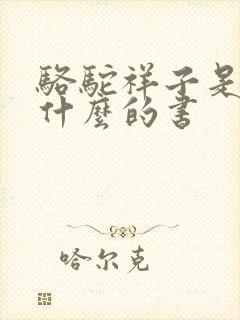 駱駝祥子是
什麼的書
哈尔克